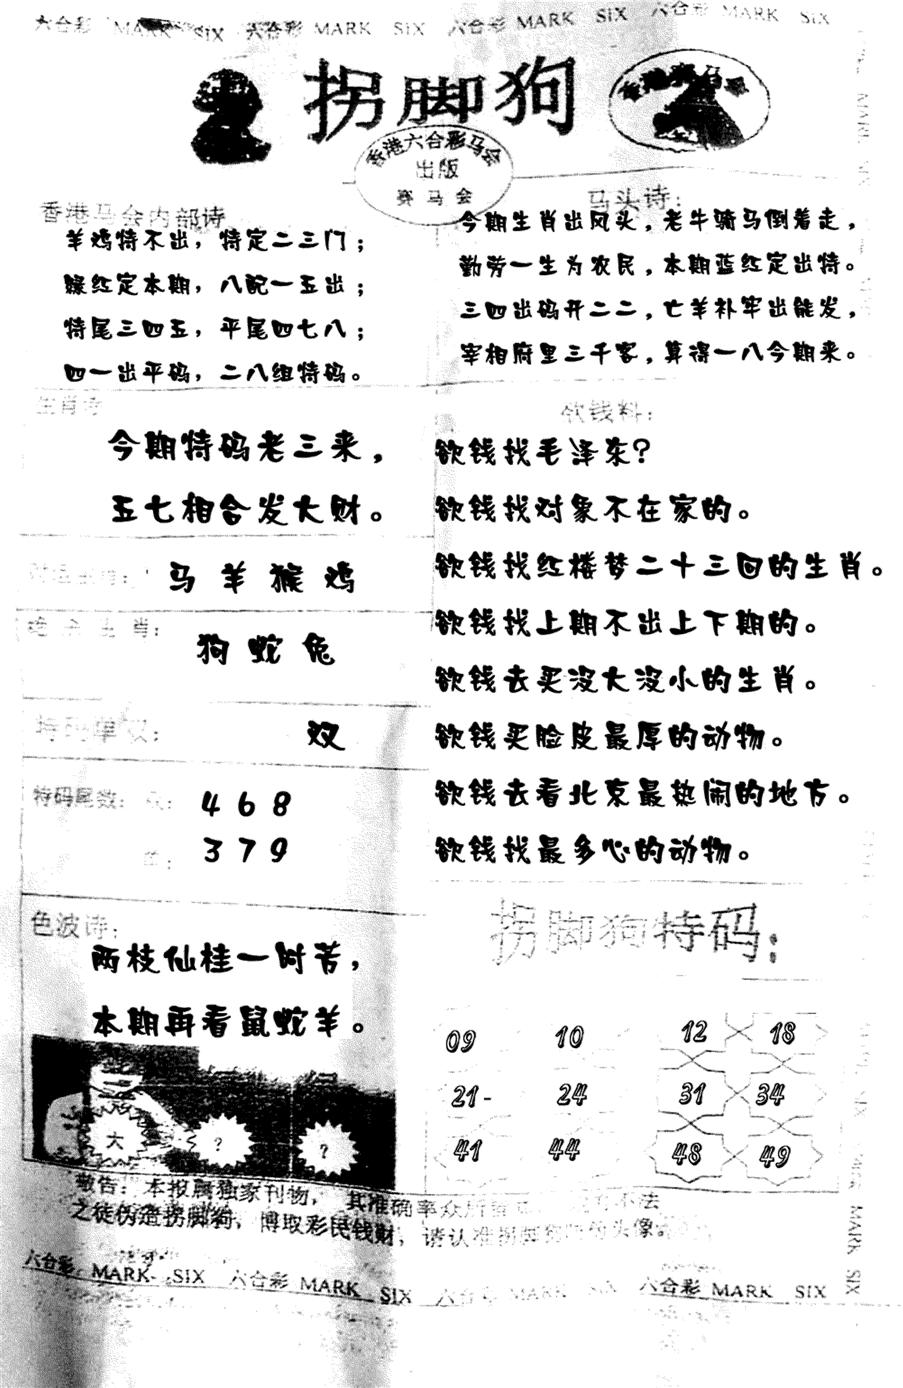 六合彩 MARK SIX 六合彩 MARK SIX 六合彩 MARK SIX 六合彩 MARK SIX
拐脚狗
香港赛马会
香港六合彩马会
出版
赛马会
香港马会内部诗
羊鸡特不出，特定二三门；
绿红定本期，八配一五出；
特尾三四五，平尾四七八；
四一出平码，二八组特码。
马头诗：
今期生肖出风头，老牛骑马倒着走，
勤劳一生为农民，本期蓝红定出特。
三四出码开二二，亡羊补牢出能发，
宰相府里三千客，算得一八今期来。
生肖诗
今期特码老三来，
五七相合发大财。
马 羊 猴 鸡
绝杀生肖：
狗 蛇 兔
特码单双：
双
特码尾数：双：
4 6 8
单：
3 7 9
色波诗：
两枝仙桂一时苦，
本期再看鼠蛇羊。
大 ? ?
钦钱料：
欲钱找毛泽东?
欲钱找对象不在家的。
欲钱找红楼梦二十三回的生肖。
欲钱找上期不出上下期的。
欲钱去买没大没小的生肖。
欲钱买脸皮最厚的动物。
欲钱去看北京最热闹的地方。
欲钱找最多心的动物。
拐脚狗特码：
09 10 12 18
21- 24 31 34
41 44 48 49
敬告：本报属独家刊物，其准确率众所 不法
之徒伪造拐脚狗，博取彩民钱财，请认准拐脚狗 头像。
六合彩 MARK SIX 六合彩 MARK SIX 六合彩 MARK SIX 六合彩 MARK SIX
MARK SIX